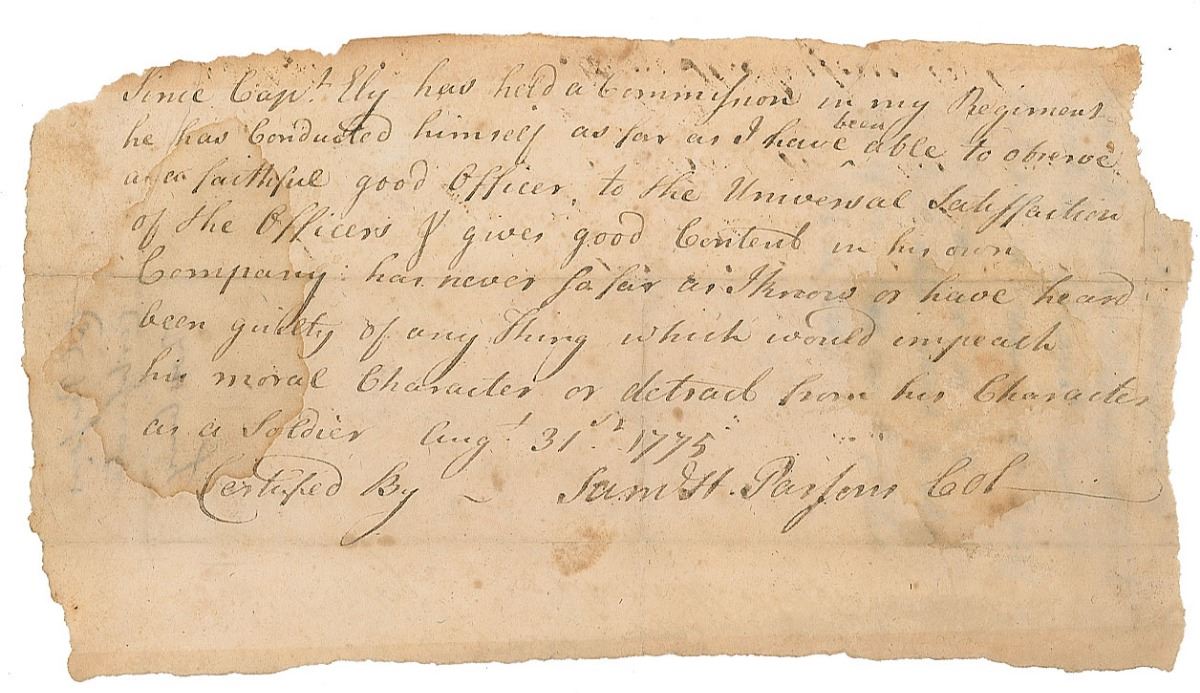 Since Capt. Ely has held a Commission in my Regiment
he has Conducted himself as far as I have been able to observe
as a faithful good Officer, to the Universal Satisfaction
of the Officers & gives good Content in his own
Company: has never so far as I know or have heard
been guilty of any Thing which would impeach
his moral Character or detract from his Character
as a Soldier Augt. 31st. 1775
Certifed By Saml H. Parsons Col